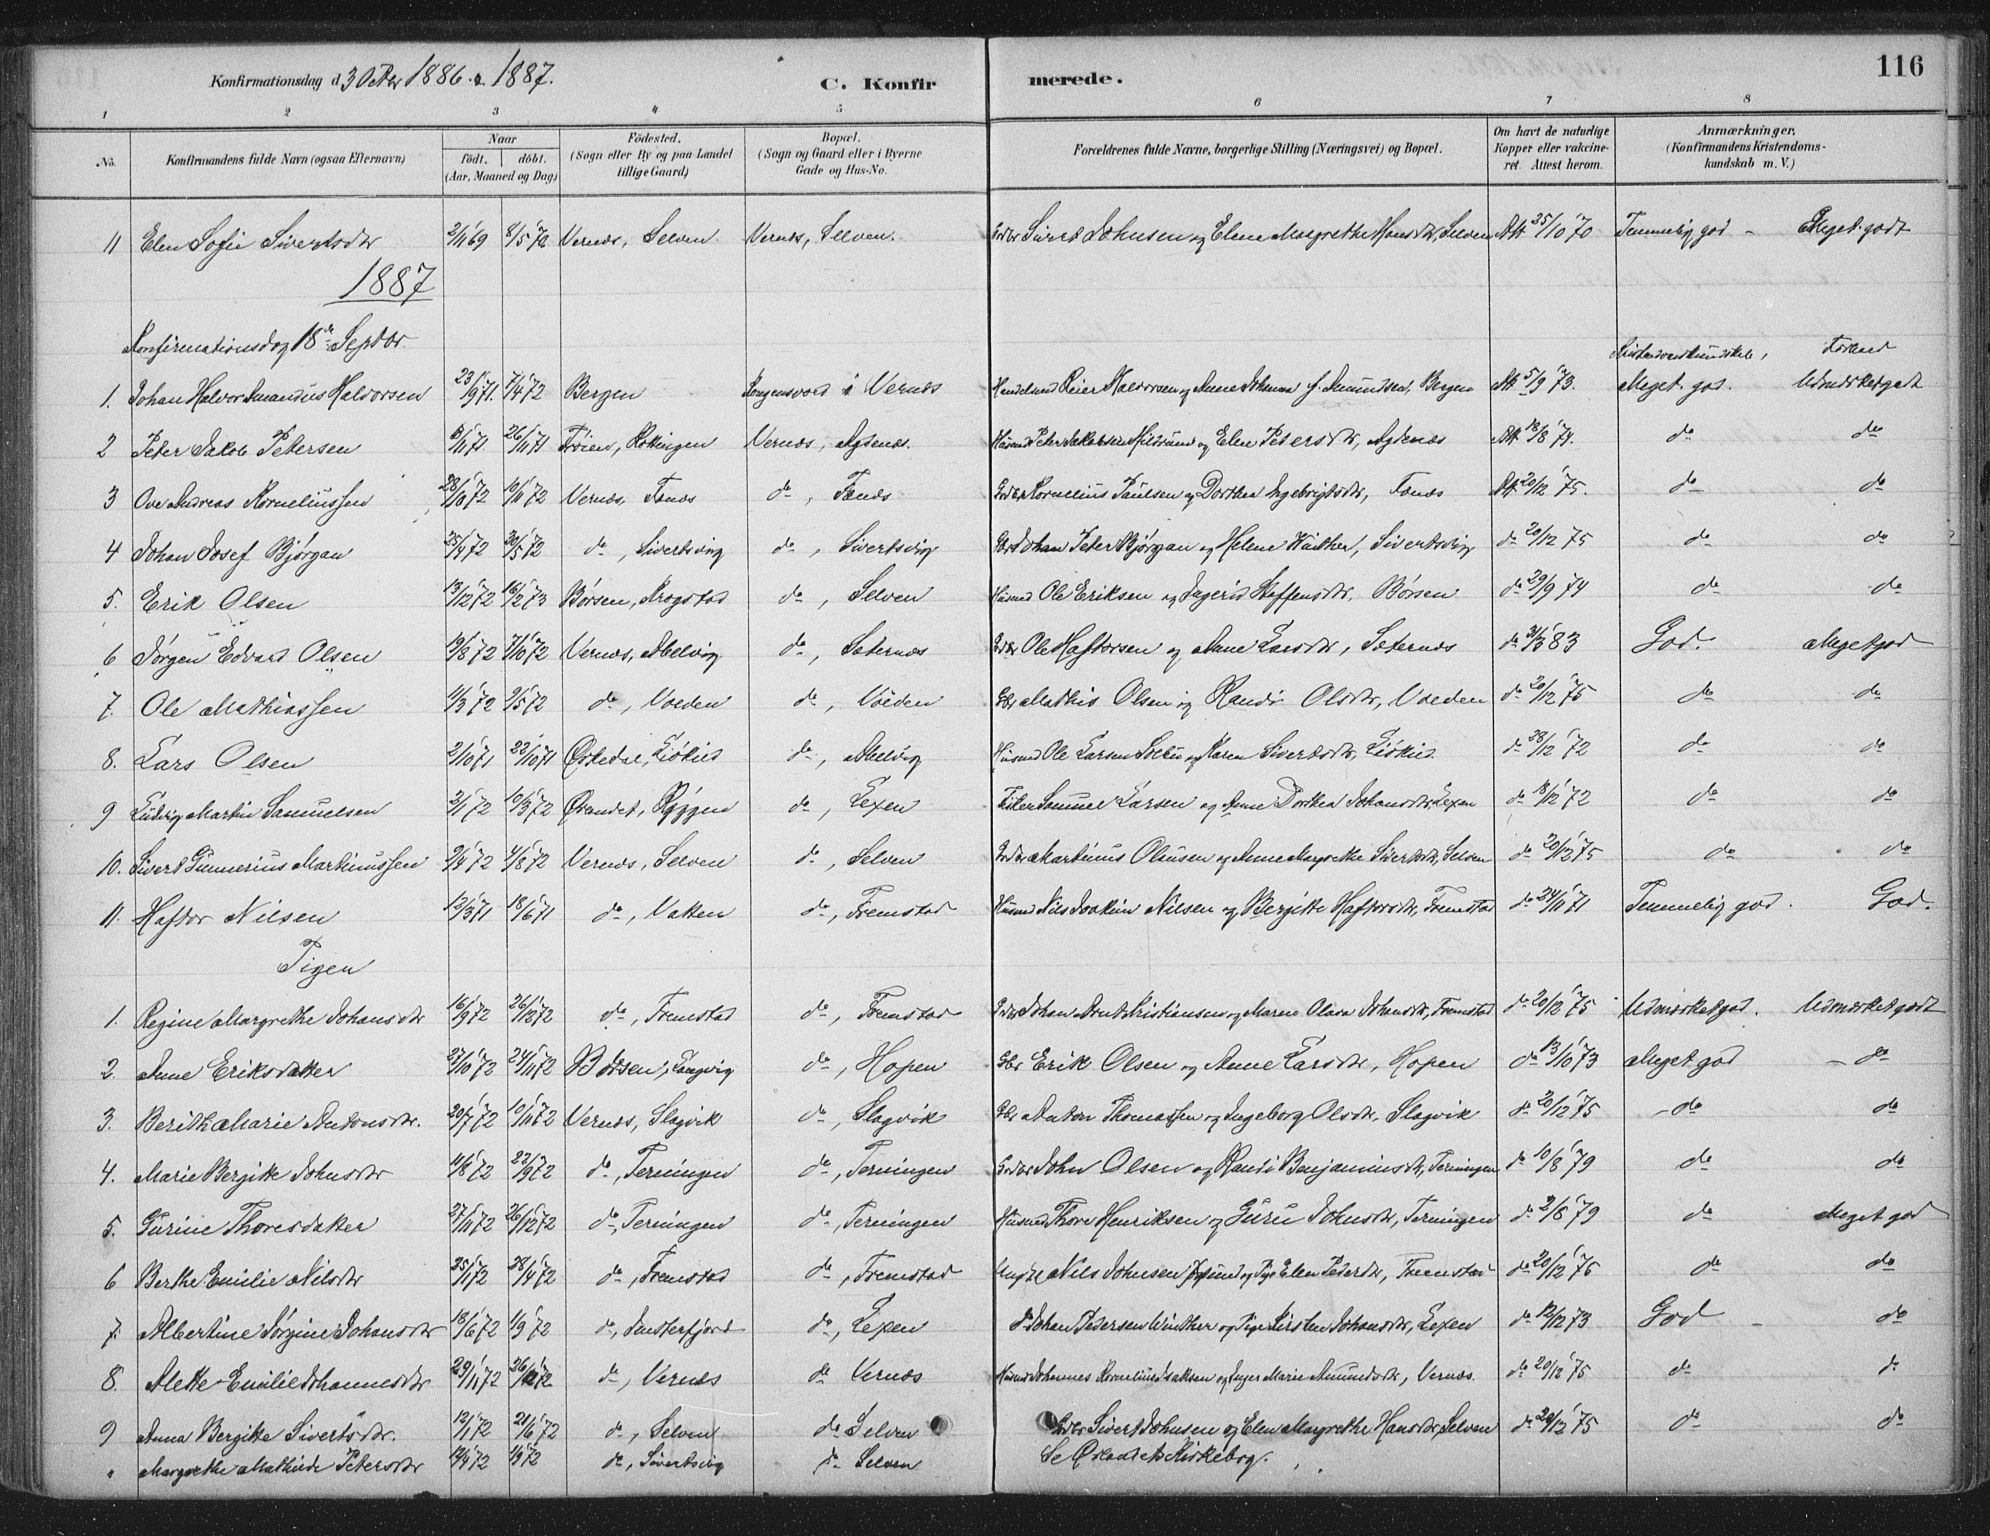 Konfirmationsdag d. 3 Octbr 1886 & 1887. C. Konfirmerede. 116
1 2 3 4 5 6 7 8
No. Konfirmandens fulde Navn (ogsaa Efternavn) Naar födt. döbt. (Aar, Maaned og Dag) Födested. (Sogn eller By og paa Landet tillige Gaard) Bopæl. (Sogn og Gaard eller i Byerne Gade og Hus-No. Forældrenes fulde Navne, borgerlige Stilling (Næringsvei) og Bopæl. Om havt de naturlige Kopper eller vakcineret. Attest herom. Anmærkninger. (Konfirmandens Kristendomskundskab m. V.)
11 Elen Sofie Sivertsdtr 2/11 69 8/5 '70 Vernæs, Selven Vernæs, Selven. Sivert Johnsen og Elena Margrethe Hansdtr, Selven Att 25/10 '70 Temmelig god - Meget godt
1887
Konfirmationsdag 18de Septbr.
Kristendomskundskab, Forhold
1. Johan Halvor Amandus Halvorsen 23/9 '71. 7/4 '72 Bergen Kongensvold i Vernæs Handelsmd Reier Halvorsen og Anne Johanna f. Amundsen, Bergen Att 5/9 '73. Meget god. Udmærket godt
2 Peter Jakob Petersen 3/11 '71 26/11 '71 Frøien, Kottingen Vernæs, Agdenæs. Husmd Peter Jakobsen og Elen Petersdtr, Agdenæs Att 18/8 '74. do do
3 Ove Andreas Korneliussen 28/10 '72 10/11 '72 Vernæs, Fonæs do, Fonæs Kornelius Paulsen og Dorthea Ingebrigtsdtr, Fonæs Att 20/12 '75. do do
4 Johan Josef Bjørgan 25/4 '72 30/5 '72 do, Sivertsvig do, Sivertsvig Gbr Johan Peter Bjørgan og Helene Winther, Sivertsvig do 20/12 75 do do
5. Erik Olsen 13/12 '72 16/2 '73 Børsen, Krogstad do, Selven Husmd Ole Eriksen og Ingerid Steffensdtr. Børsen do 29/9 74 do do
6 Jørgen Edvard Olsen 19/8 '72 7/10 '72 Vernæs, Mælvig do, Sæternæs Ole Haftorsen og Anne Larsdtr, Sæternæs do 31/3 '83 God. Meget god
7. Ole Mathiassen 11/3 '72 9/5 '72 do, Voeden do, Voeden Gbr Mathis Olsen og Randi Olsdtr, Voeden do 20/12 '75 do do
8. Lars Olsen 2/10 '71 22/10 '71 Ørkedal, do, Mælvig Husmd Ole Larsen og Karen Sivertsdtr, do 28/12 '72 do do
9 Ludvig Martin Samuelsen 2/1 '72 10/3 '72 Ørlandet, Ryggen do, Lexen Samuel Larsen og Anne Dorthea Johansdtr, Lexen do 18/12 '72 do do
10. Sivert Gunnerius Martinussen 2/4 '72 4/8 '72 Vernæs, Selven do, Selven Martinus Olausen og Anne Margrethe Sivertsdtr, Selven do 20/12 '75 do do
11. Haftor Nilsen 12/3 '71 18/6 '71 do, Vatten do, Fremstad Husmd Nils Joakim Nilsen og Bergitte Haftorsdtr, Fremstad do 24/11 '71 Temmelig god. God.
Pigen
1. Regine Margrethe Johansdtr 16/9 '72 26/12 '72 do, Fremstad do, Fremstad Johan Arnt Kristiansen og Maren Olava Johansdtr, Fremstad do 20/12 '75 Udmærket god. Udmærket godt
2. Anne Eriksdatter 27/10 '72 24/11 '72 Børsen, Langvig do, Hopen Gbr Erik Olsen og Anne Larsdtr, Hopen do 13/10 '73 Meget god - do
3. Berith Marie Antonsdtr. 20/7 '72 10/11 '72 Vernæs, Slagvik do, Slagvik Gbr Anton Thomassen og Ingeborg Olsdtr, Slagvik do 20/12 '75 - do do
4. Marie Bergitte Johnsdtr 11/8 '72 22/9 '72 do, Terningen do, Terningen John Olsen og Randi Benjaminsdtr, Terningen do 10/8 '79 do do
5. Gurine Thoresdatter 27/11 '72 26/12 '72 do, Terningen do, Terningen Husmd Thore Henriksen og Guru Johnsdtr, Terningen do 2/8 '79 do Meget god
6 Berthe Emilie Nilsdtr 25/1 '72 28/4 '72 do, Fremstad do, Fremstad Ungkl Nils Johnsen og Pige Elen Pedersdtr, Fremstad do 20/12 '75 do do
7. Albertine Jørgine Johansdtr 18/6 '72 1/9 '72 do, do, Lexen do Johan Pedersen Winther og Pige Kirsten Johansdtr, Lexen do 12/12 73 God - do
8. Alette Emilie Johannesdtr 29/11 '72 26/12 '72 do, Vernæs do Vernæs Husmd Johannes Kornelius Isaksen og Inger Marie Amundsdtr, Vernæs. do 20/12 '75 do do
9 Anna Bergitte Sivertsdtr. 12/1 '72 21/6 '72 do, Selven do Selven Sivert Johnsen og Elen Margrethe Hansdtr, Selven do 20/12 '75 do do
" Margrethe Mathilde Petersdtr 14/4 '72 1/9 '72 do, Sivertsvig do Selven Se Ørlandets Kirkebog.